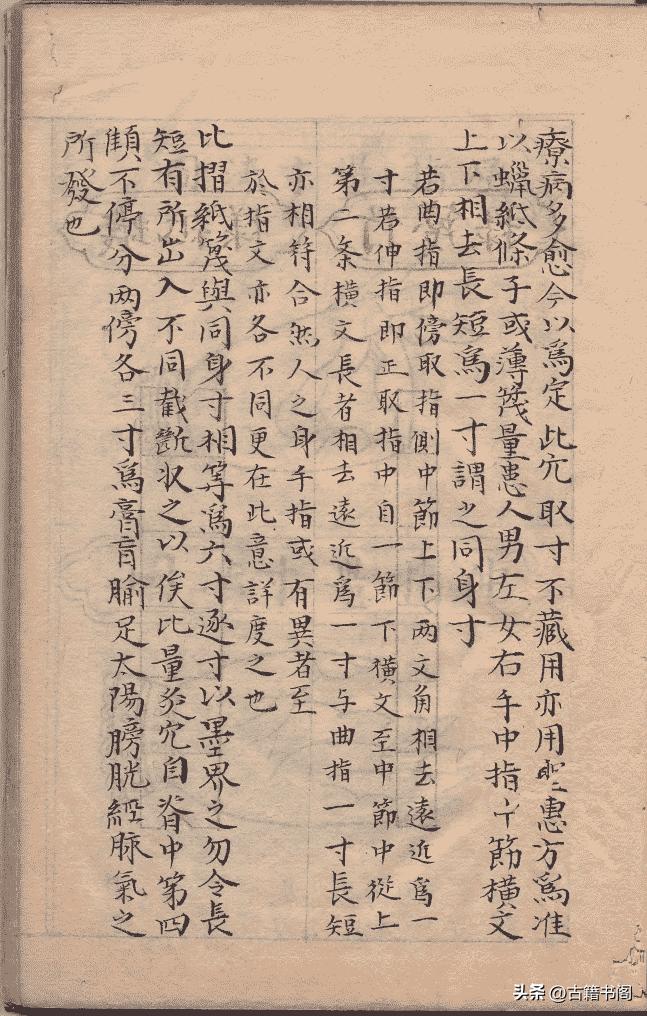 療病多愈今以爲定此穴取寸不藏用亦用聖惠方爲准
以蠟紙條子或薄篾量患人男左女右手中指中節橫文
上下相去長短爲一寸謂之同身寸
若曲指即傍取指側中節上下两文角相去遠近爲一
寸若伸指即正取指中自一節下橫文至中節中從上
第二条橫文長者相去遠近爲一寸与曲指一寸長短
亦相符合然人之身手指或有異者至
於指文亦各不同更在此意詳度之也
比摺紙篾與同身寸相等爲六寸逐寸以墨界之勿令長
短有所出入不同截斷収之以俟比量灸穴自脊中第四
顀不停分两傍各三寸爲膏肓腧足太陽膀胱經脉氣之
所發也
头条 @古籍书阁